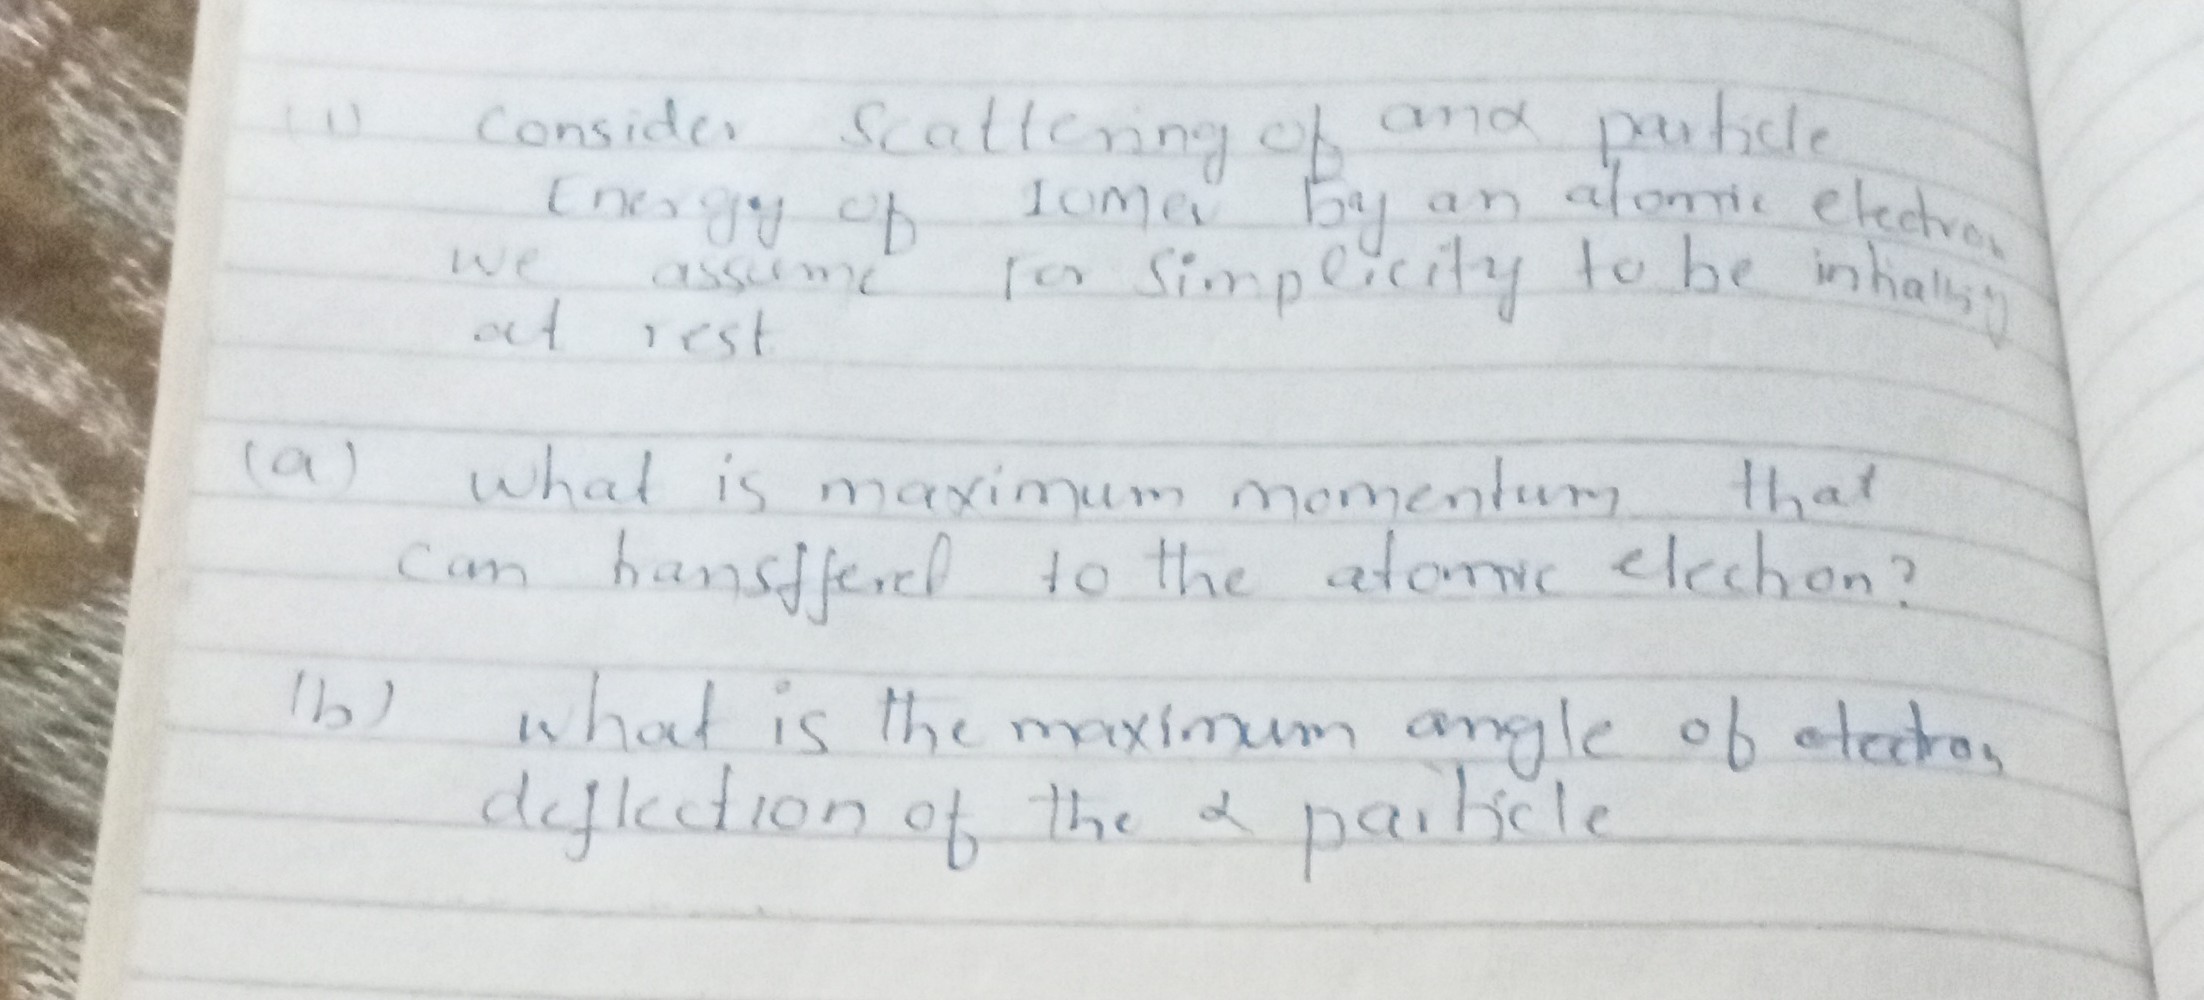 (1) Consider Scattering of and particle
Energy of 10Mev by an atomic electron
we assume for Simplicity to be initially
at rest
(a) what is maximum momentum that
can transffered to the atomic electron?
(b) what is the maximum angle of electron
deflection of the α particle